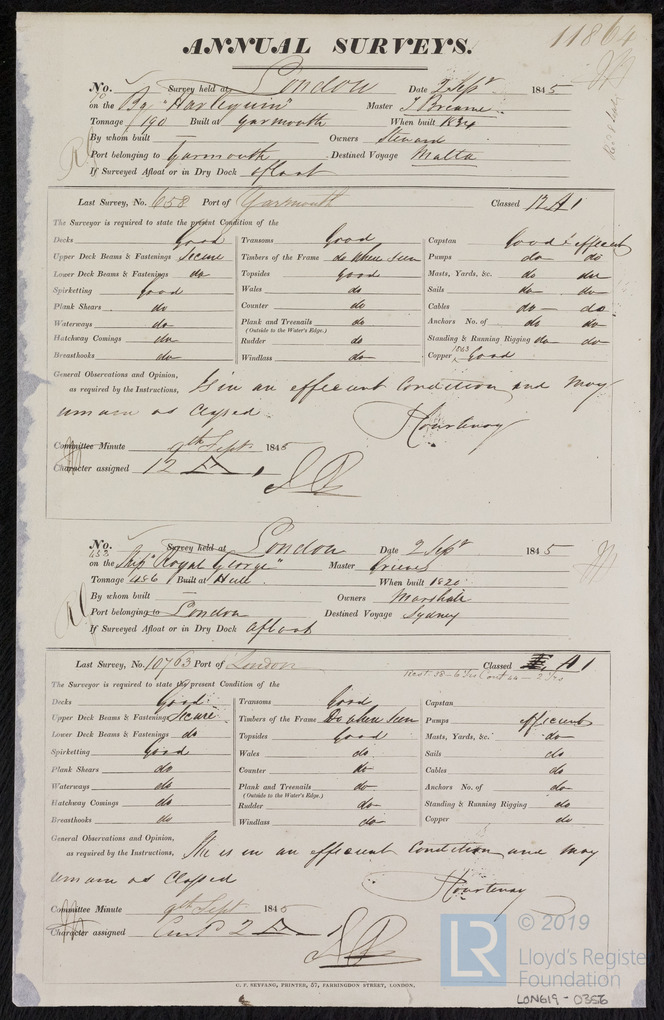 11864
ANNUAL SURVEYS.
No. Survey held at London Date 2 Septr 1845
on the Bg "Harlequin" Master
Tonnage 190 Built at Yarmouth When built 1834
By whom built — Owners Steward
Port belonging to Yarmouth Destined Voyage Malta
If Surveyed Afloat or in Dry Dock afloat
Last Survey, No. 658 Port of Yarmouth Classed 12 A 1
The Surveyor is required to state the present Condition of the
Decks Good
Upper Deck Beams & Fastenings Secure
Lower Deck Beams & Fastenings do
Spirketting Good
Plank Shears do
Waterways do
Hatchway Comings do
Breasthooks do
Transoms Good
Timbers of the Frame do where seen
Topsides Good
Wales do
Counter do
Plank and Treenails do
(Outside to the Water's Edge.)
Rudder do
Windlass do
Capstan Good & efficient
Pumps do do
Masts, Yards, &c. do do
Sails do do
Cables do do
Anchors No. of do do
Standing & Running Rigging do do
Copper 1843 Good
General Observations and Opinion,
as required by the Instructions, Is in an efficient Condition and may
remain as Classed
Courtenay
Committee Minute 9th Septr 1845
Character assigned 12 A 1
No. Survey held at London Date 2 Septr 1845
on the Ship "Royal George" Master Greaves
Tonnage 486 Built at Hull When built 1820
By whom built — Owners Marshall
Port belonging to London Destined Voyage Sydney
If Surveyed Afloat or in Dry Dock afloat
Last Survey, No. 10763 Port of London Classed A 1
Rest 38 - 6 Yrs Cont 44 - 2 Yrs
The Surveyor is required to state the present Condition of the
Decks Good
Upper Deck Beams & Fastenings Secure
Lower Deck Beams & Fastenings do
Spirketting Good
Plank Shears do
Waterways do
Hatchway Comings do
Breasthooks do
Transoms Good
Timbers of the Frame Do where seen
Topsides Good
Wales do
Counter do
Plank and Treenails do
(Outside to the Water's Edge.)
Rudder do
Windlass do
Capstan
Pumps efficient
Masts, Yards, &c. do
Sails do
Cables do
Anchors No. of do
Standing & Running Rigging do
Copper do
General Observations and Opinion,
as required by the Instructions, She is in an efficient Condition and may
remain as Classed
Courtenay
Committee Minute 9th Septr 1845
Character assigned Contd 2 A 1
G. F. SEYFANG, PRINTED, 57, FARRINGDON STREET, LONDON.
LR
© 2019
Lloyd's Register
Foundation
LON619 - 0356